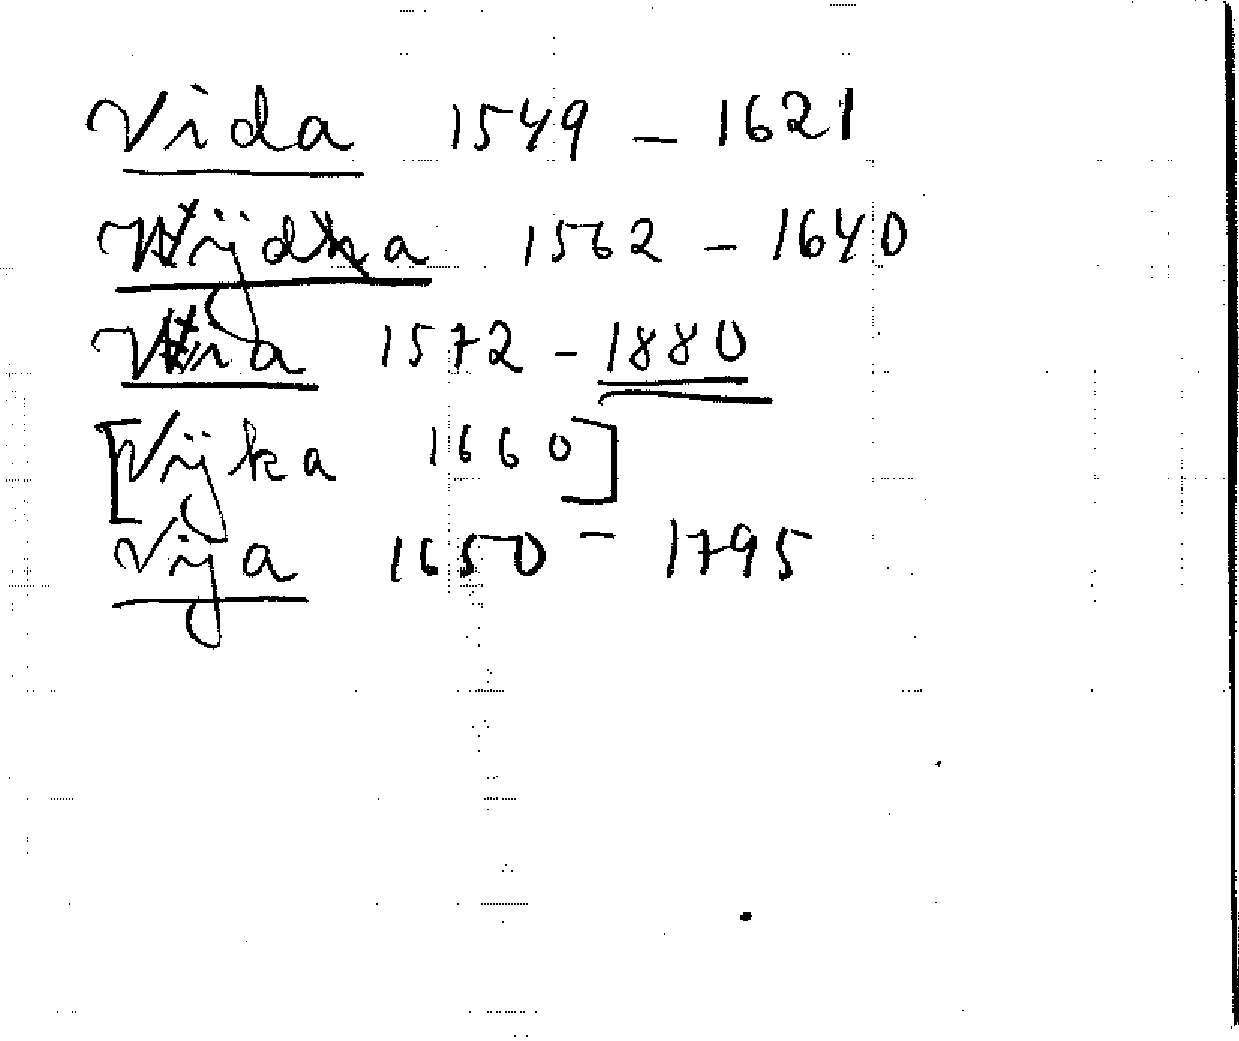 Vida 1549 - 1621
Vijda 1562 - 1640
Via 1572 - 1880
[Vijka 1660]
Vija 1650 - 1795